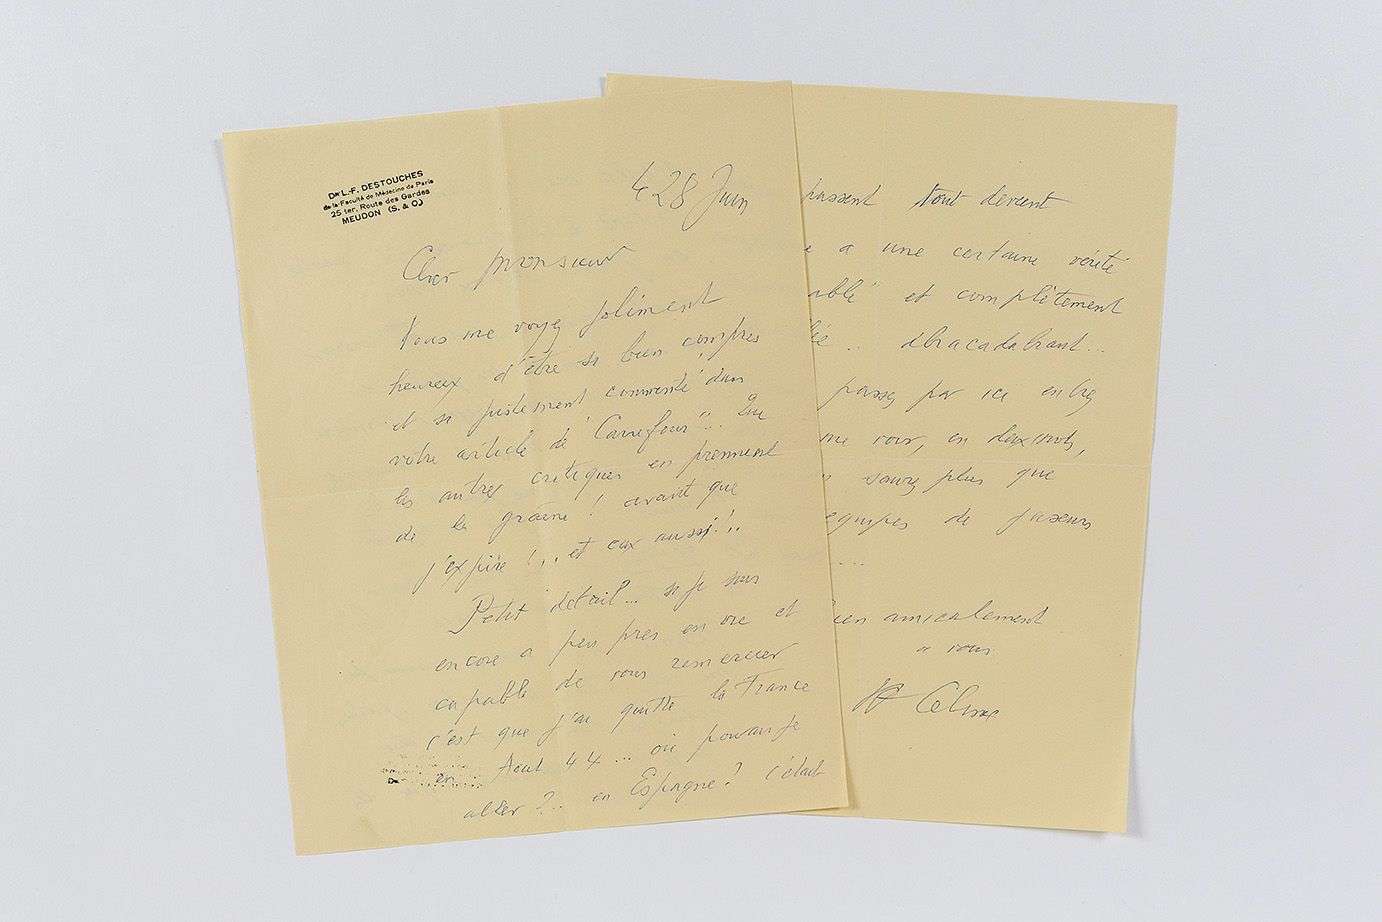 Dr L.-F. DESTOUCHES
de la Faculté de Médecine de Paris
25 ter, Route des Gardes
MEUDON (S. & O)
28 Juin
Cher Monsieur
Vous me voyez joliment
heureux d'être si bien compris
et si justement commenté dans
votre article de "Carrefour"... Que
les autres critiques en prennent
de la graine ! avant que
j'expire !.. et eux aussi !..
Petit détail... si je suis
encore a peu près en vie et
capable de vous remercier
c'est que j'ai quitté la France
en Aout 44 ... où pouvais je
aller ?.. en Espagne ? c'était
passent tout devient
a une certaine vérité
et complètement
abracadabrant...
passez par ici entrez
me voir, en deux mots,
saurez plus que
équipes de jaseurs
...
bien amicalement
a vous
LF Celine